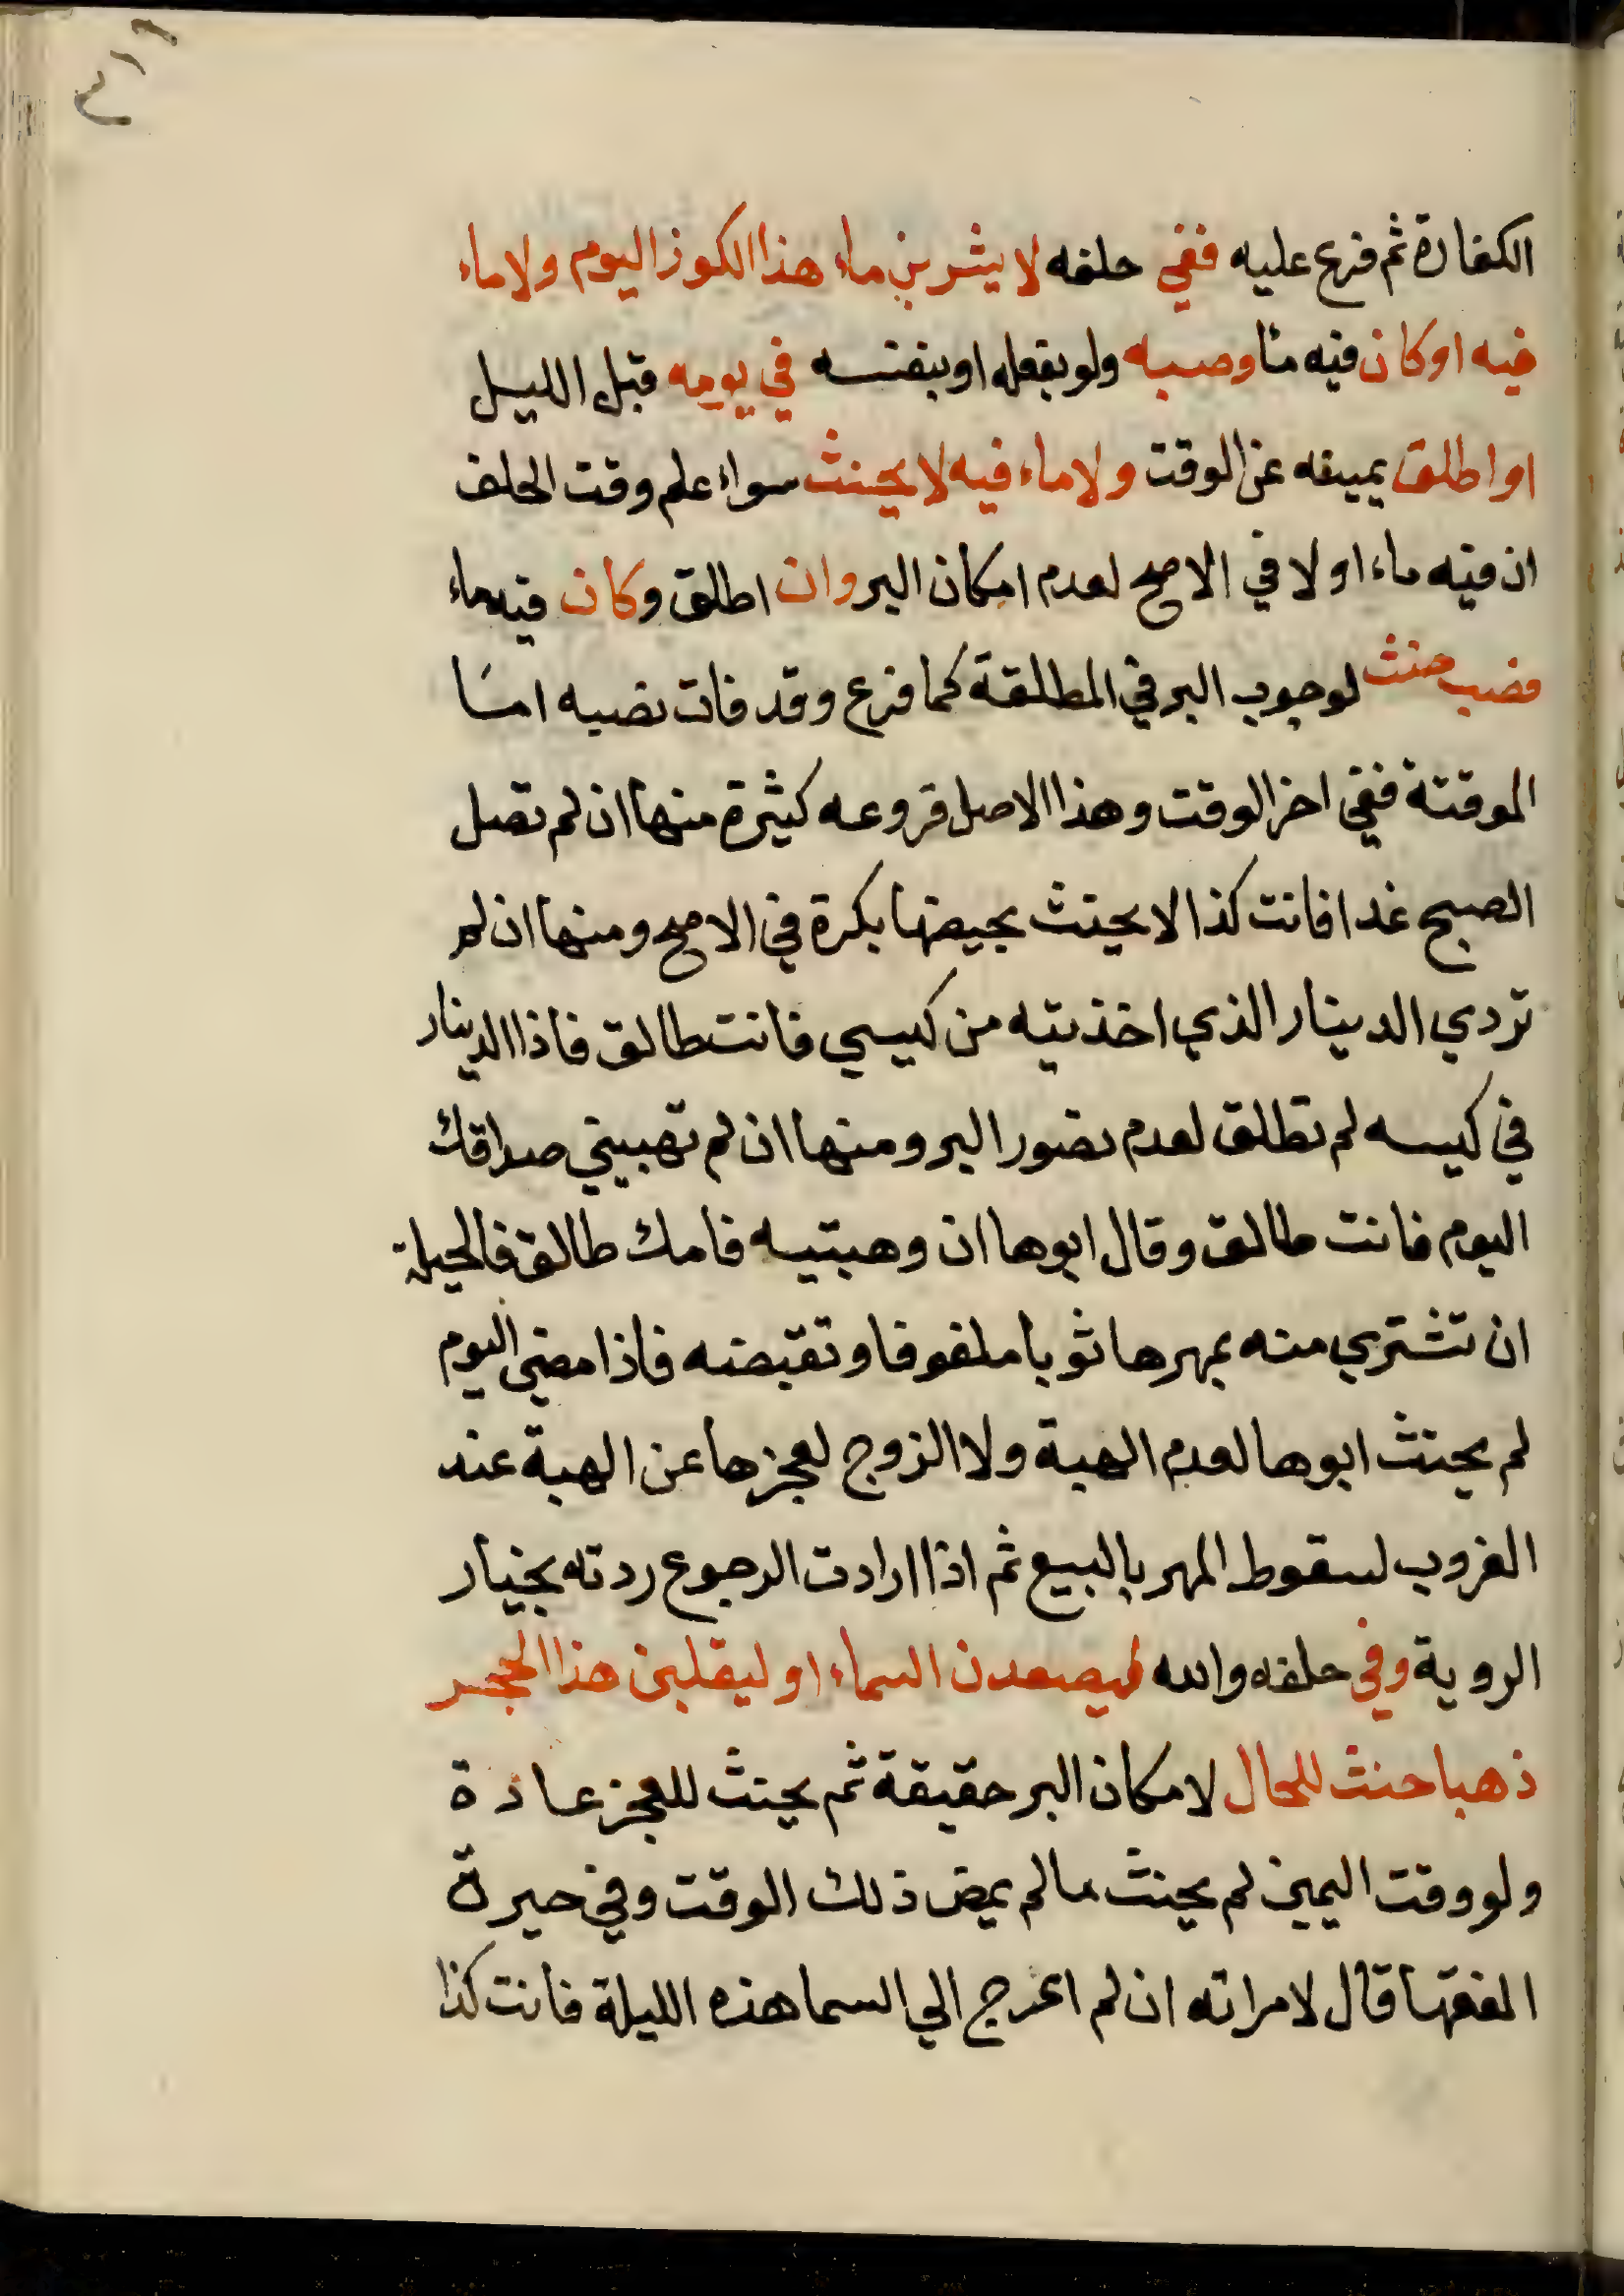 ٣١٩
الكفارة ثم فرع عليه ففي حلفه لا يشربن ماء هذا الكوز اليوم ولا ماء
فيه او كان فيه ما وصبه ولو بفعله او بنفسه في يومه قبل الليل
او اطلق يمينه عن الوقت ولا ماء فيه لا يحنث سواء علم وقت الحلف
ان فيه ماء اولا في الاصح لعدم امكان البر وان اطلق وكان فيه ماء
فصب حنث لوجوب البر في المطلقة كما فرغ وقد فات بصبه اما
الموقتة ففي اخر الوقت وهذا الاصل فروعه كثيرة منها ان لم تصل
الصبح غدا فانت كذا لا يحنث بحيضها بكرة في الاصح ومنها ان لم
تردي الدينار الذي اخذيته من كيسي فانت طالق فاذا الدينار
في كيسه لم تطلق لعدم تصور البر ومنها ان لم تهبيني صداقك
اليوم فانت طالق وقال ابوها ان وهبتيه فامك طالق فالحيلة
ان تشتري منه بمهرها ثوبا ملفوفا وتقبضه فاذا مضى اليوم
لم يحنث ابوها لعدم الهبة ولا الزوج لعجزها عن الهبة عند
الغروب لسقوط المهر بالبيع ثم اذا ارادت الرجوع ردته بخيار
الروية وفي حلفه والله ليصعدن السماء او ليقلبن هذا الحجر
ذهبا حنث للحال لامكان البر حقيقة ثم يحنث للعجز عادة
ولو وقت اليمين لم يحنث ما لم يمض ذلك الوقت وفي حيرة
الفقها قال لامراته ان لم اعرج الي السما هذه الليلة فانت كذا